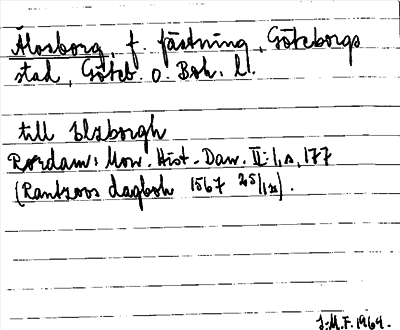 Älvsborg, f. fästning, Göteborgs
stad, Göteb. o. Boh. l.
till Elzborgh
Rørdam: Mon. Hist. Dan. II:1, s. 177
(Rantzovs dagbok 1567 25/12).
J.M.F. 1969.